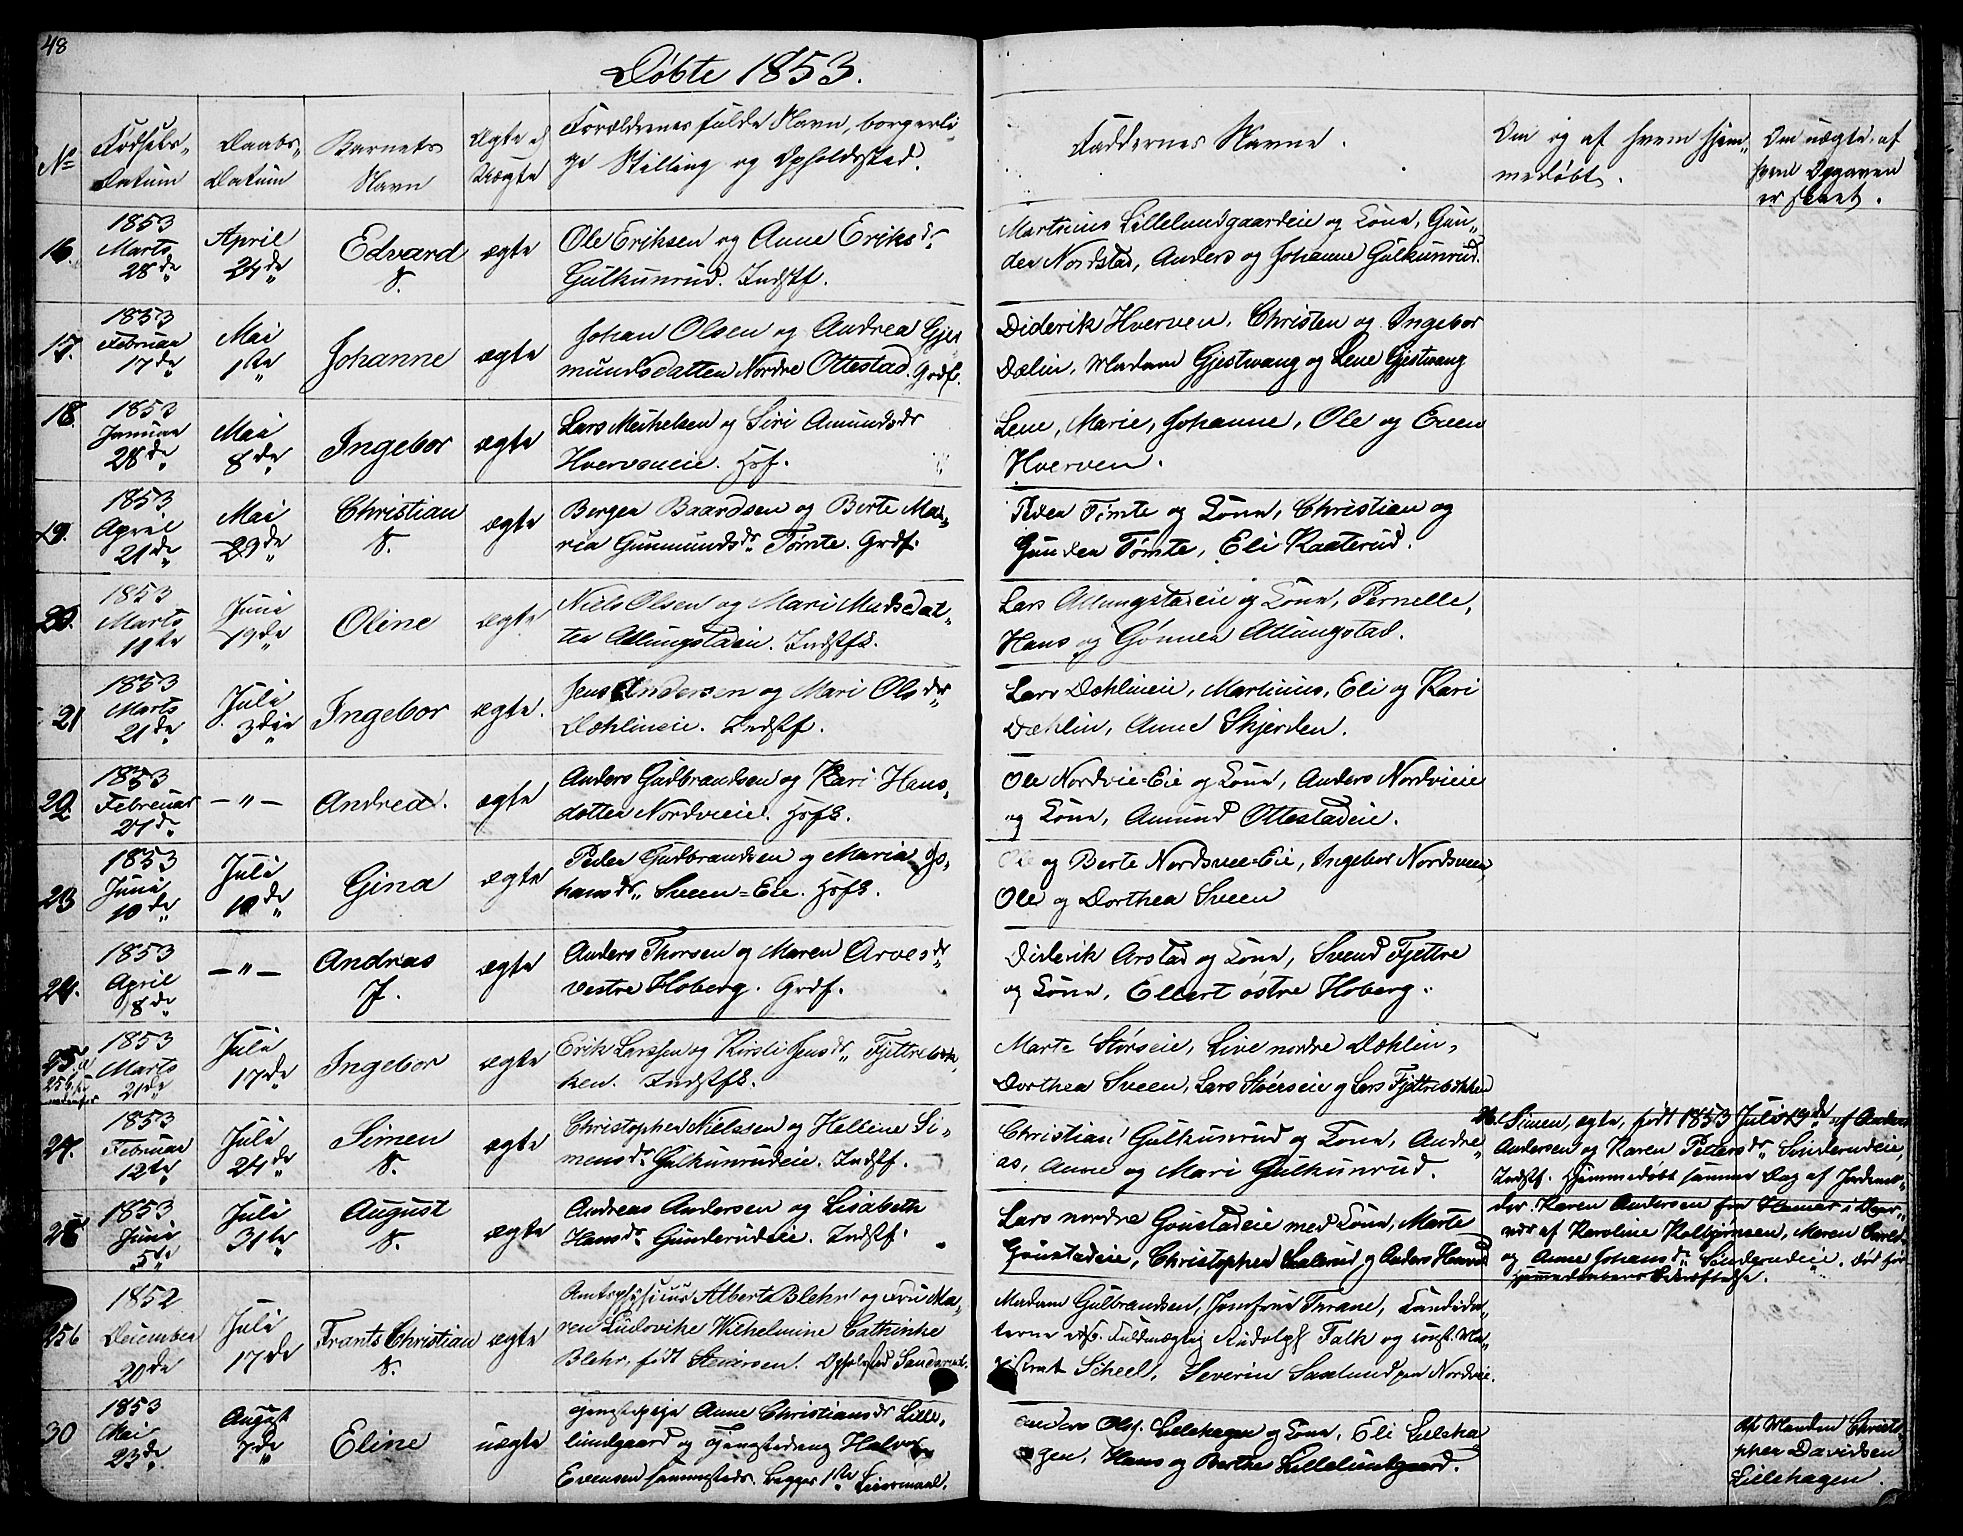 48
Døbte 1853.
No
Fødsels-Datum
Daabs-Datum
Barnets Navn
Ægte el Uægte
Forældrenes fulde Navn, borgerlige Stilling og Opholdssted.
Faddernes Navne.
Om og af hvem hjemmedøbt.
Om uægte, af hvem Opgaven er skeet.
16.
1853 Marts 28de
April 24de
Edvard S.
ægte
Ole Eriksen og Anne Eriksdr.
Gulkunrud. Indstf.
Martinius Lillelundgaardeie og Kone, Gun-
der Nordstad, Anders og Johanne Gulkunrud.
17.
1853 Februar 17de
Mai 1ste
Johanne
ægte
Johan Olsen og Andrea Gjer
mundsdatter Nordre Ottestad. Grdf.
Diderik Hverven, Christen og Ingebor
Dælin, Madam Gjestvang og Lene Gjestvang
18.
1853 Januar 28de
Mai 8de
Ingebor
ægte
Lars Mikkelsen og Siri Amundsdr
Hverveneie. Hsf.
Lene, Marie, Johanne, Ole og Even
Hverven.
19.
1853 April 21de
Mai 29de
Christian S.
ægte
Berger Baardsen og Berte Ma-
ria Gunmundsdr. Tømte. Grdf.
Peder Tømte og Kone, Christian og
Gunder Tømte, Eli Kaaterud.
20.
1853 Marts 11te
Juni 19de
Oline
ægte
Niels Olsen og Mari Madsdat-
ter Atlungstadeie. Indstfk.
Lars Atlungstadeie og Kone, Pernelle,
Hans og Gønner Atlungstad.
21
1853 Marts 21de
Juli 3die
Ingebor
ægte.
Jens Andersen og Mari Olsdr
Dæhlineie. Indstf.
Lars Dæhlineie, Martinius, Eli og Kari
Dæhlin, Anne Skjerden.
22.
1853 Februar 27de
-"-
Andrea.
ægte
Anders Gudbrandsen og Kari Hans-
datter Nordvieie. Hsfk.
Ole Nordvie-Eie og Kone, Anders Nordvieie
og Kone, Amund Ottestadeie.
23
1853 Juni 10de
Juli 10de
Gina
ægte
Peder Gudbrandsen og Maria Jo-
hansdr. Sveen=Eie. Hsfk.
Ole og Berte Nordsvee-Eie, Ingebor Nordsveen
Ole og Dorthea Sveen
24.
1853 April 8de
-"-
Andreas J.
ægte
Anders Thorsen og Maren Arvesdr
vestre Hoberg. Grdf.
Diderik Arstad og Kone, Svend Fjettre
og Kone, Ellert østre Hoberg.
25.a
25b
1853 Marts 21de
Juli 17de
Ingebor
ægte
Erik Larssen og Kirsti Jensdr. Fjettrebak-
ken. Indstfk.
Marte Størseie, Live nordre Dæhlin,
Dorthea Sveen, Lars Størseie og Lars Fjettrebakken
27.
1853 Februar 12te
Juli 24de
Simen S.
ægte
Christopher Nielssen og Hellene Si-
mensdr. Gulkunrudeie. Indstf.
Christian Gulkunrud og Kone, Andre-
as, Anne og Mari Gulkunrud.
26. Simen, ægte, født 1853 Juli 19de af Anders
Andersen og Karen Pettersdr. Sinderudeie,
Indstf. Hjemmedøbt samme Dag af Jordemo-
der Karen Andersen fra Hamar i Over-
vær af Karoline Kolbjørnsen, Maren
og Anne Johansdr. Sinderudeie. Død før
Hjemmedaabens Bekræftelse.
28
1853 Juni 5te
Juli 31te
August S.
ægte
Andreas Andersen og Lisabeth
Hansdr. Gunderudeie. Indstf.
Lars nordre Gonstadeie med Kone, Marte
Gonstadeie, Christopher og Anders
25b
1852 December 20de
Juli 17de
Frants Christian S.
ægte
Amtsphysicus Albert Blehr og Frue Ma-
ren Ludovike Wilhelmine Cathinke
Blehr, født Steiersen. Opholdsted Sanderud.
Madam Gulbrandsen, Jomfrue Thrane, Candida-
terne Fuldmægtig Rudolph Falk og const. Ma-
gistrat Scheel, Severin Saxlund paa Nordvie.
30
1853 Mai 23de
August 7de
Eline
uægte
Tjenstepige Anne Christiansdr Lille-
lundgaard og Tjenstedreng Halvor
Evensen sammesteds. Begges 1ste Leiermaal.
Anders Ols. Lilehagen og Kone, Eli Lileha
gen, Hans og Berthe Lillelundgaard.
Af Manden Christo
pher Davidsen
Lilehagen.